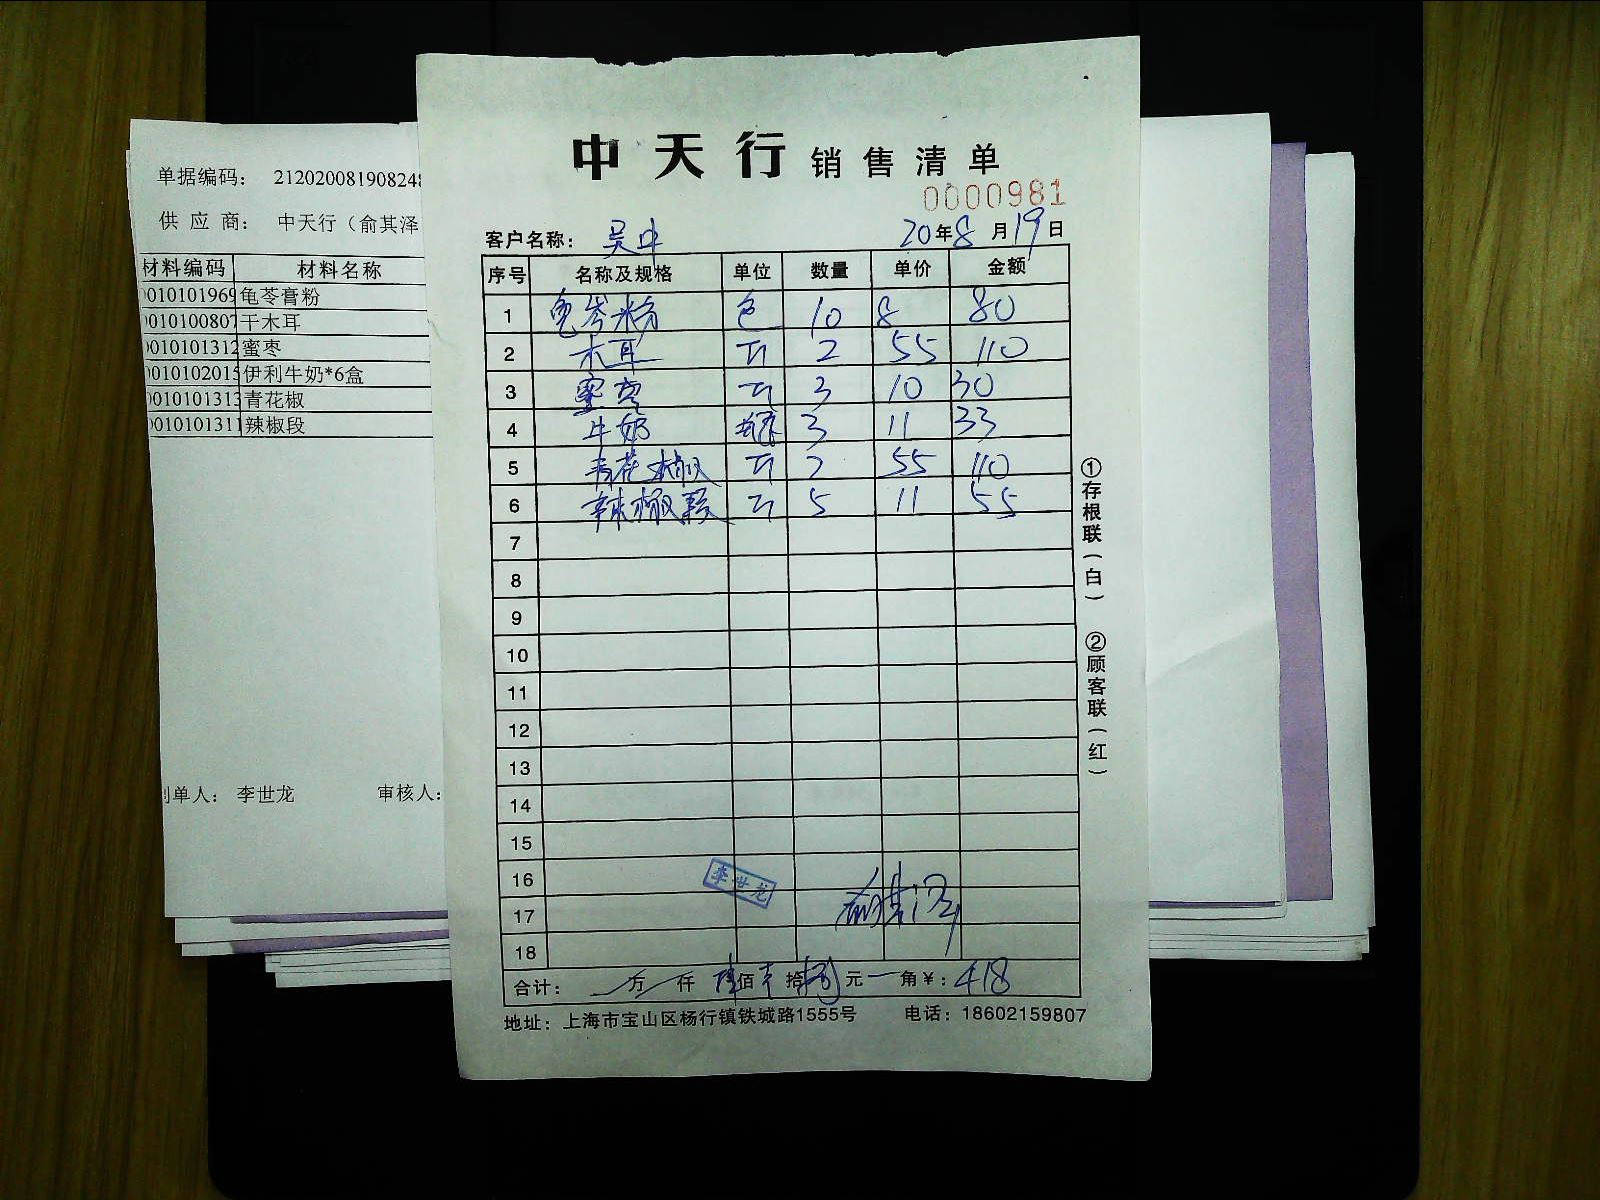 单据编码： 21202008190824
供 应 商： 中天行（俞其泽
材料编码 材料名称
010101969 龟苓膏粉
010100807 干木耳
010101312 蜜枣
010102015 伊利牛奶*6盒
010101313 青花椒
010101311 辣椒段
制单人： 李世龙 审核人：
中天行 销售清单
0000981
客户名称： 吴中 20年8月19日
序号 名称及规格 单位 数量 单价 金额
1 龟苓粉 包 10 8 80
2 木耳 斤 2 55 110
3 蜜枣 斤 3 10 30
4 牛奶 3 11 33
5 青花椒 斤 2 55 110
6 辣椒段 斤 5 11 55
7
8
9
10
11
12
13
14
15
16
17
18
李世龙
俞其泽
合计： 万 仟 肆佰 拾 捌元 角¥：418
地址：上海市宝山区杨行镇铁城路1555号 电话：18602159807
①存根联（白） ②顾客联（红）